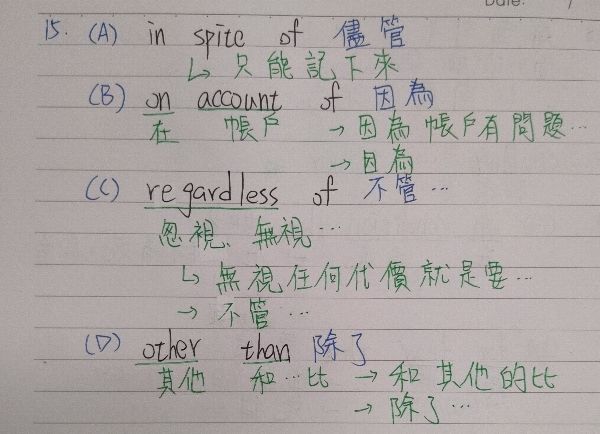 Date: /
15. (A) in spite of 儘管
↳ 只能記下來
(B) on account of 因為
在 帳戶 → 因為帳戶有問題…
→ 因為
(C) regardless of 不管…
忽視、無視…
↳ 無視任何代價就是要…
→ 不管…
(D) other than 除了
其他 和…比 → 和其他的比
→ 除了…